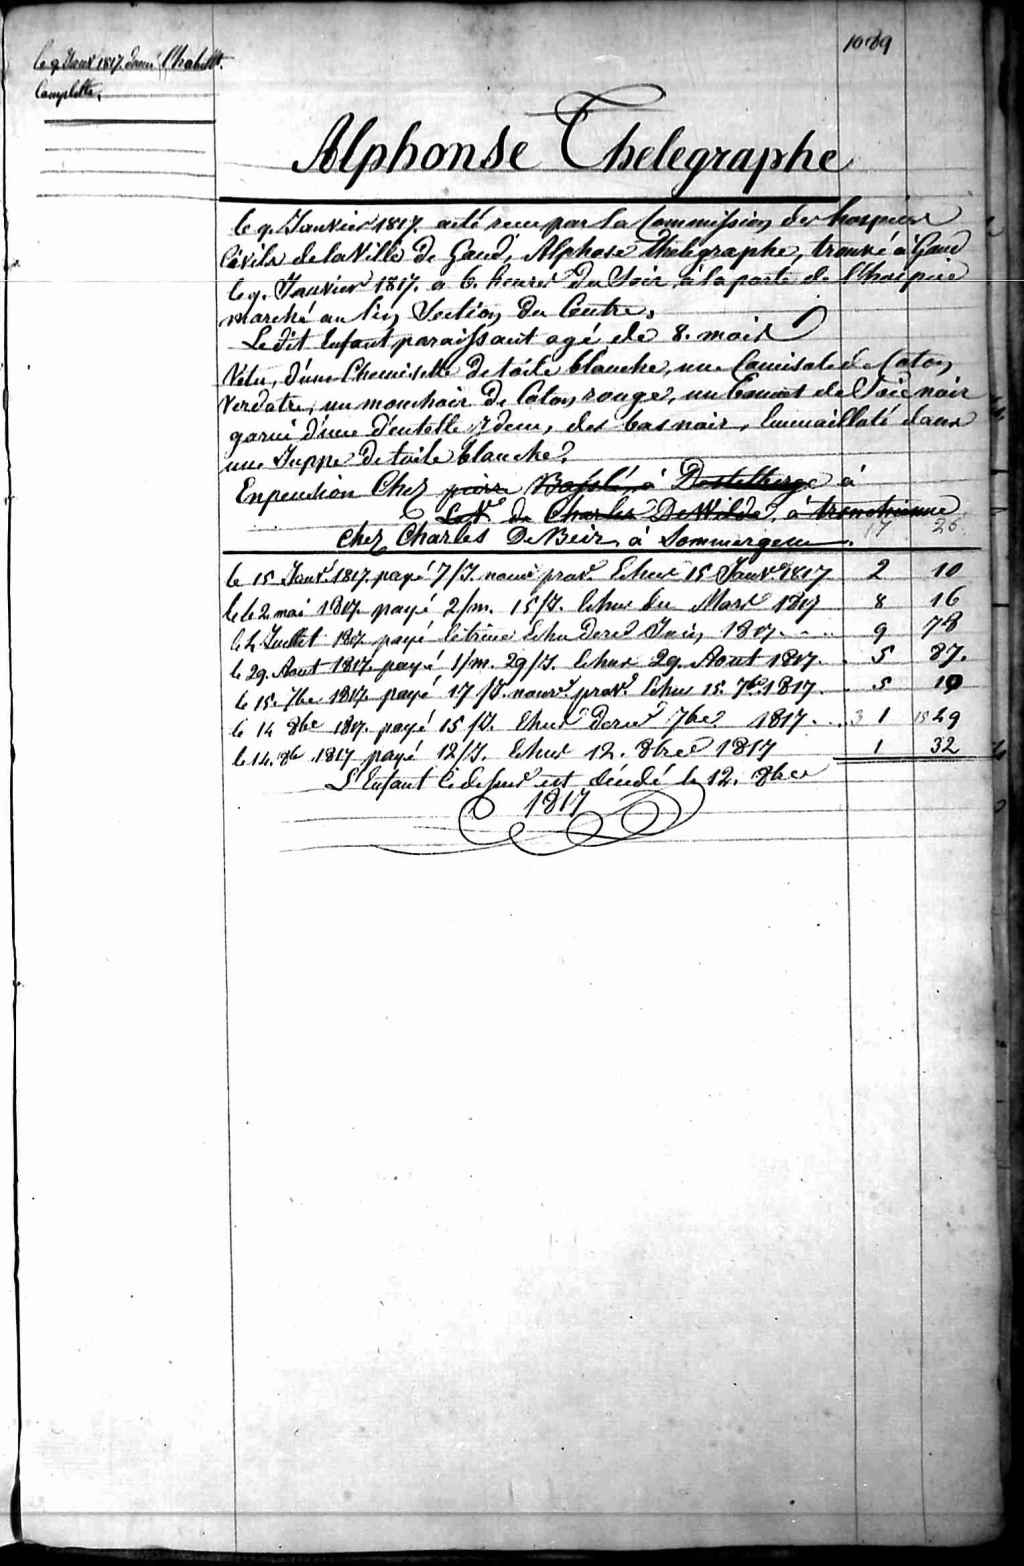 1089
le 9 Janvr 1817. donné l'habillt.
Complette,
Alphonse Thelegraphe
le 9. Janvier 1817. a été recu par la Commission des hospices
Civils de la Ville de Gand, Alphose Thelegraphe, trouvé à Gand
le 9. Janvier 1817. a 6. heures du Soir, à la porte de l'hospice
marché au lin, Section du Centre.
Le dit Enfant paraissant agé de 8. mois
Vetu, d'une Chemisette de toile blanche, une Camisole de Coton
Verdatre, un mouchoir de Coton rouge, un bonnet de Soie noir
garni d'une d'entelle idem, des bas noir, Emmailloté dans
une Juppe de toile blanche.
Enpension Chez pierre à Destelberge à
La Ve de Charles DeWilde, à tronchienne
chez Charles DeBeir, à Sommergem
17 26
le 15 Janvr. 1817 payé 7/J. nour provre. Echus 15 Janvr 1817 2 10
le 2 mai 1817. payé 2/m. 15/J. Echus fin Mars 1817 8 16
le 4 Juillet 1817. payé le trime Echu Dere Juin 1817. 9 78
le 29. Aout 1817. payé 1/m. 29/J. Echus 29. Aout 1817. 5 87.
le 15. 7bre 1817. payé 17/J. nour. prov. Echus 15. 7bre 1817. 5 10
le 14 8bre 1817. payé 15/J. Echus Dere 7bre 1817. 31 1529
le 14. 8bre 1817 payé 12/J. Echus 12. 8bre 1817 1 32
L'Enfant Cidessus est décédé le 12. 8bre
1817